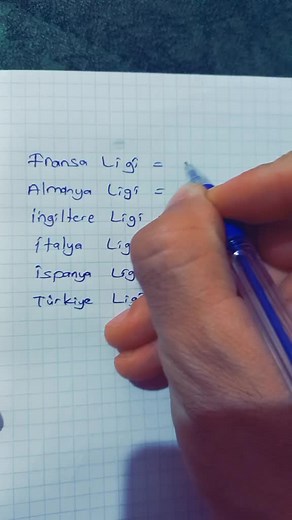 Fransa Ligi =
Almanya Ligi =
ingiltere Ligi
italya Lig
ispanya Lig
Türkiye Ligi